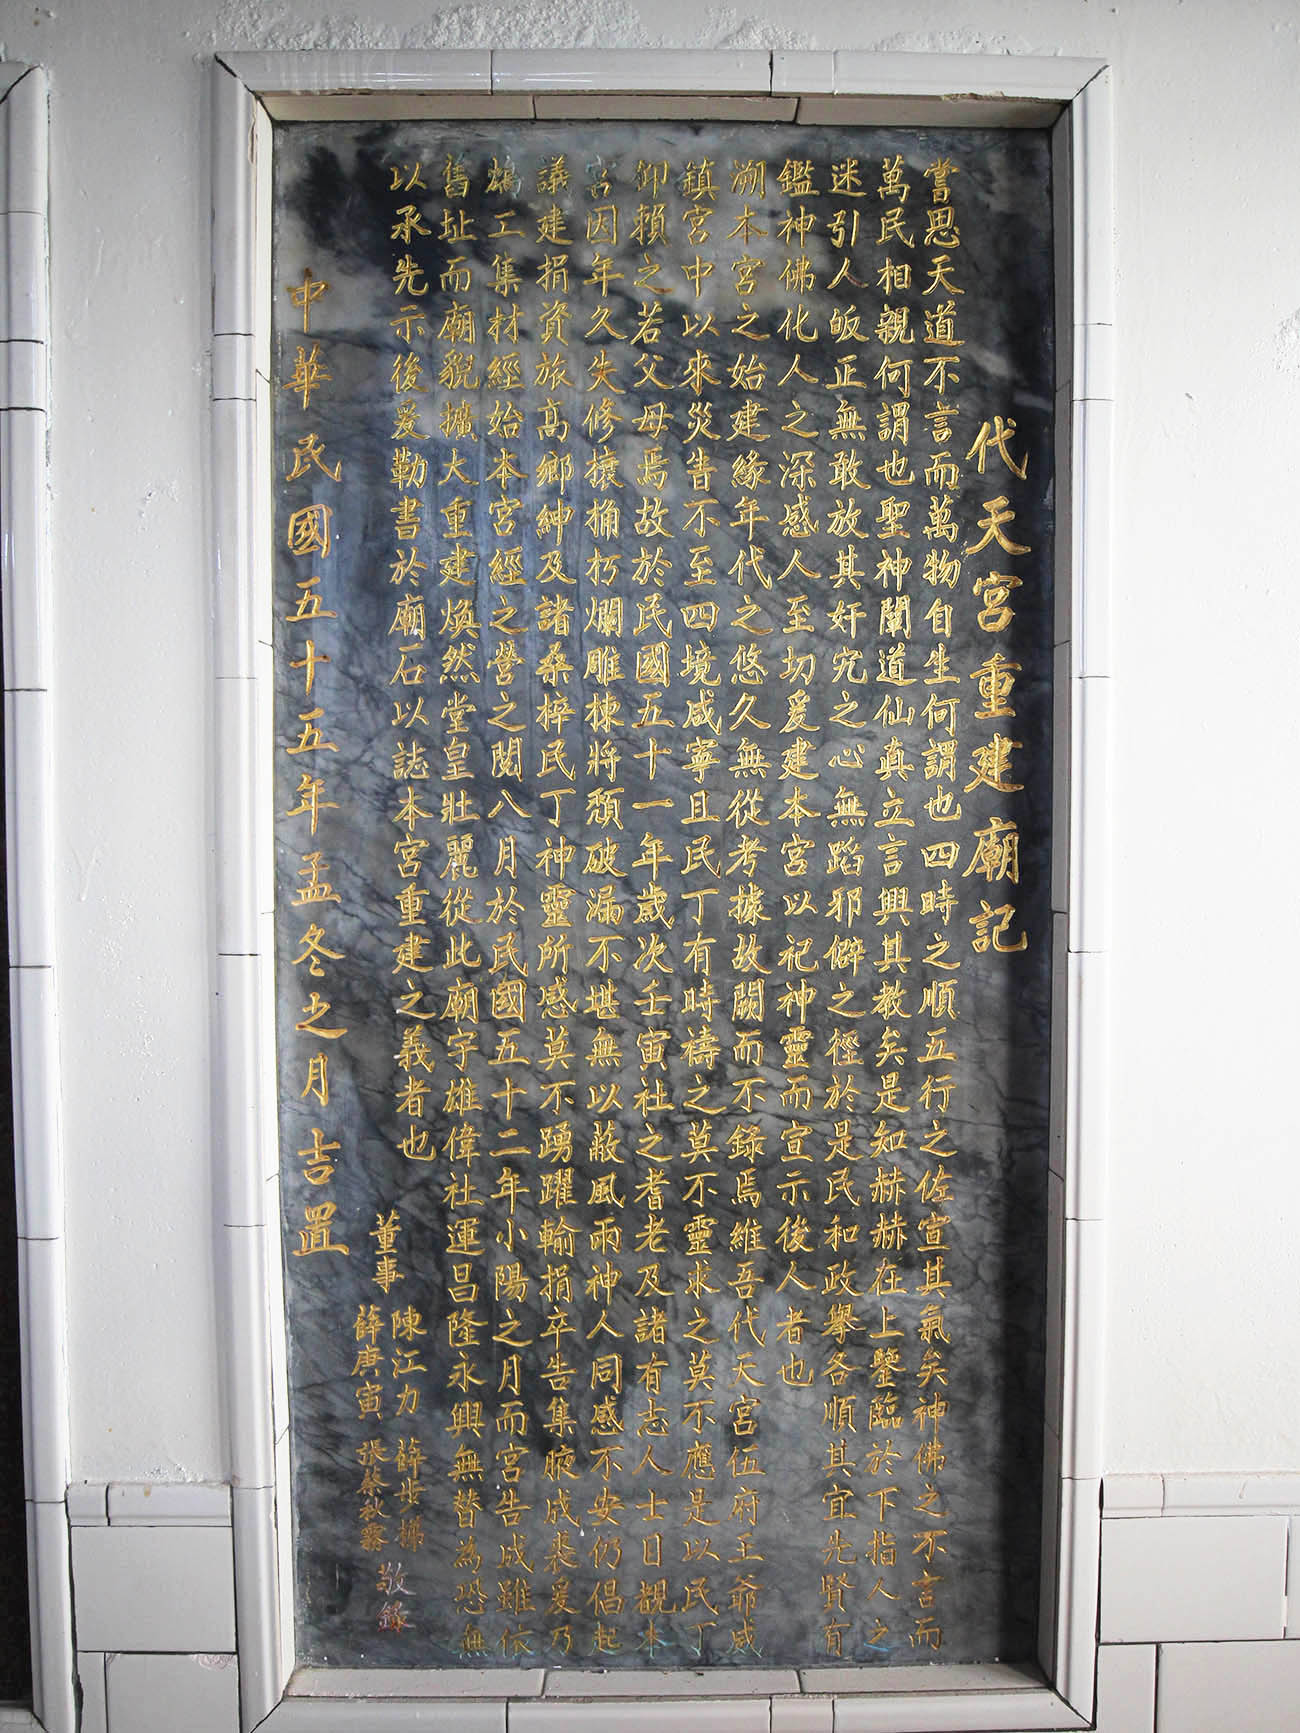 代天宮重建廟記
嘗思天道不言而萬物自生何謂也四時之順五行之佐宣其氣矣神佛之不言而
萬民相親何謂也聖神闡道仙真立言興其教矣是知赫赫在上鑒臨於下指人之
迷引人皈正無敢放其奸宄之心無蹈邪僻之徑於是民和政舉各順其宜先賢有
鑑神佛化人之深感人至切爰建本宮以祀神靈而宣示後人者也
溯本宮之始建緣年代之悠久無從考據故闕而不錄焉維吾代天宮伍府王爺威
鎮宮中以來災眚不至四境咸寧且民丁有時禱之莫不靈求之莫不應是以民丁
仰賴之若父母焉故於民國五十一年歲次壬寅社之耆老及諸有志人士目觀本
宮因年久失修榱桷朽爛雕棟將頹破漏不堪無以蔽風雨神人同感不安仍倡起
議建捐資旅高鄉紳及諸桑梓民丁神靈所感莫不踴躍輸捐卒告集腋成裘爰乃
鳩工集材經始本宮經之營之閱八月於民國五十二年小陽之月而宮告成雖依
舊址而廟貌擴大重建煥然堂皇壯麗從此廟宇雄偉社運昌隆永興無替為恐無
以承先示後爰勒書於廟石以誌本宮重建之義者也
董事 陳江力 薛 薛庚寅 張蔡秋霧 敬錄
中華民國五十五年孟冬之月吉置